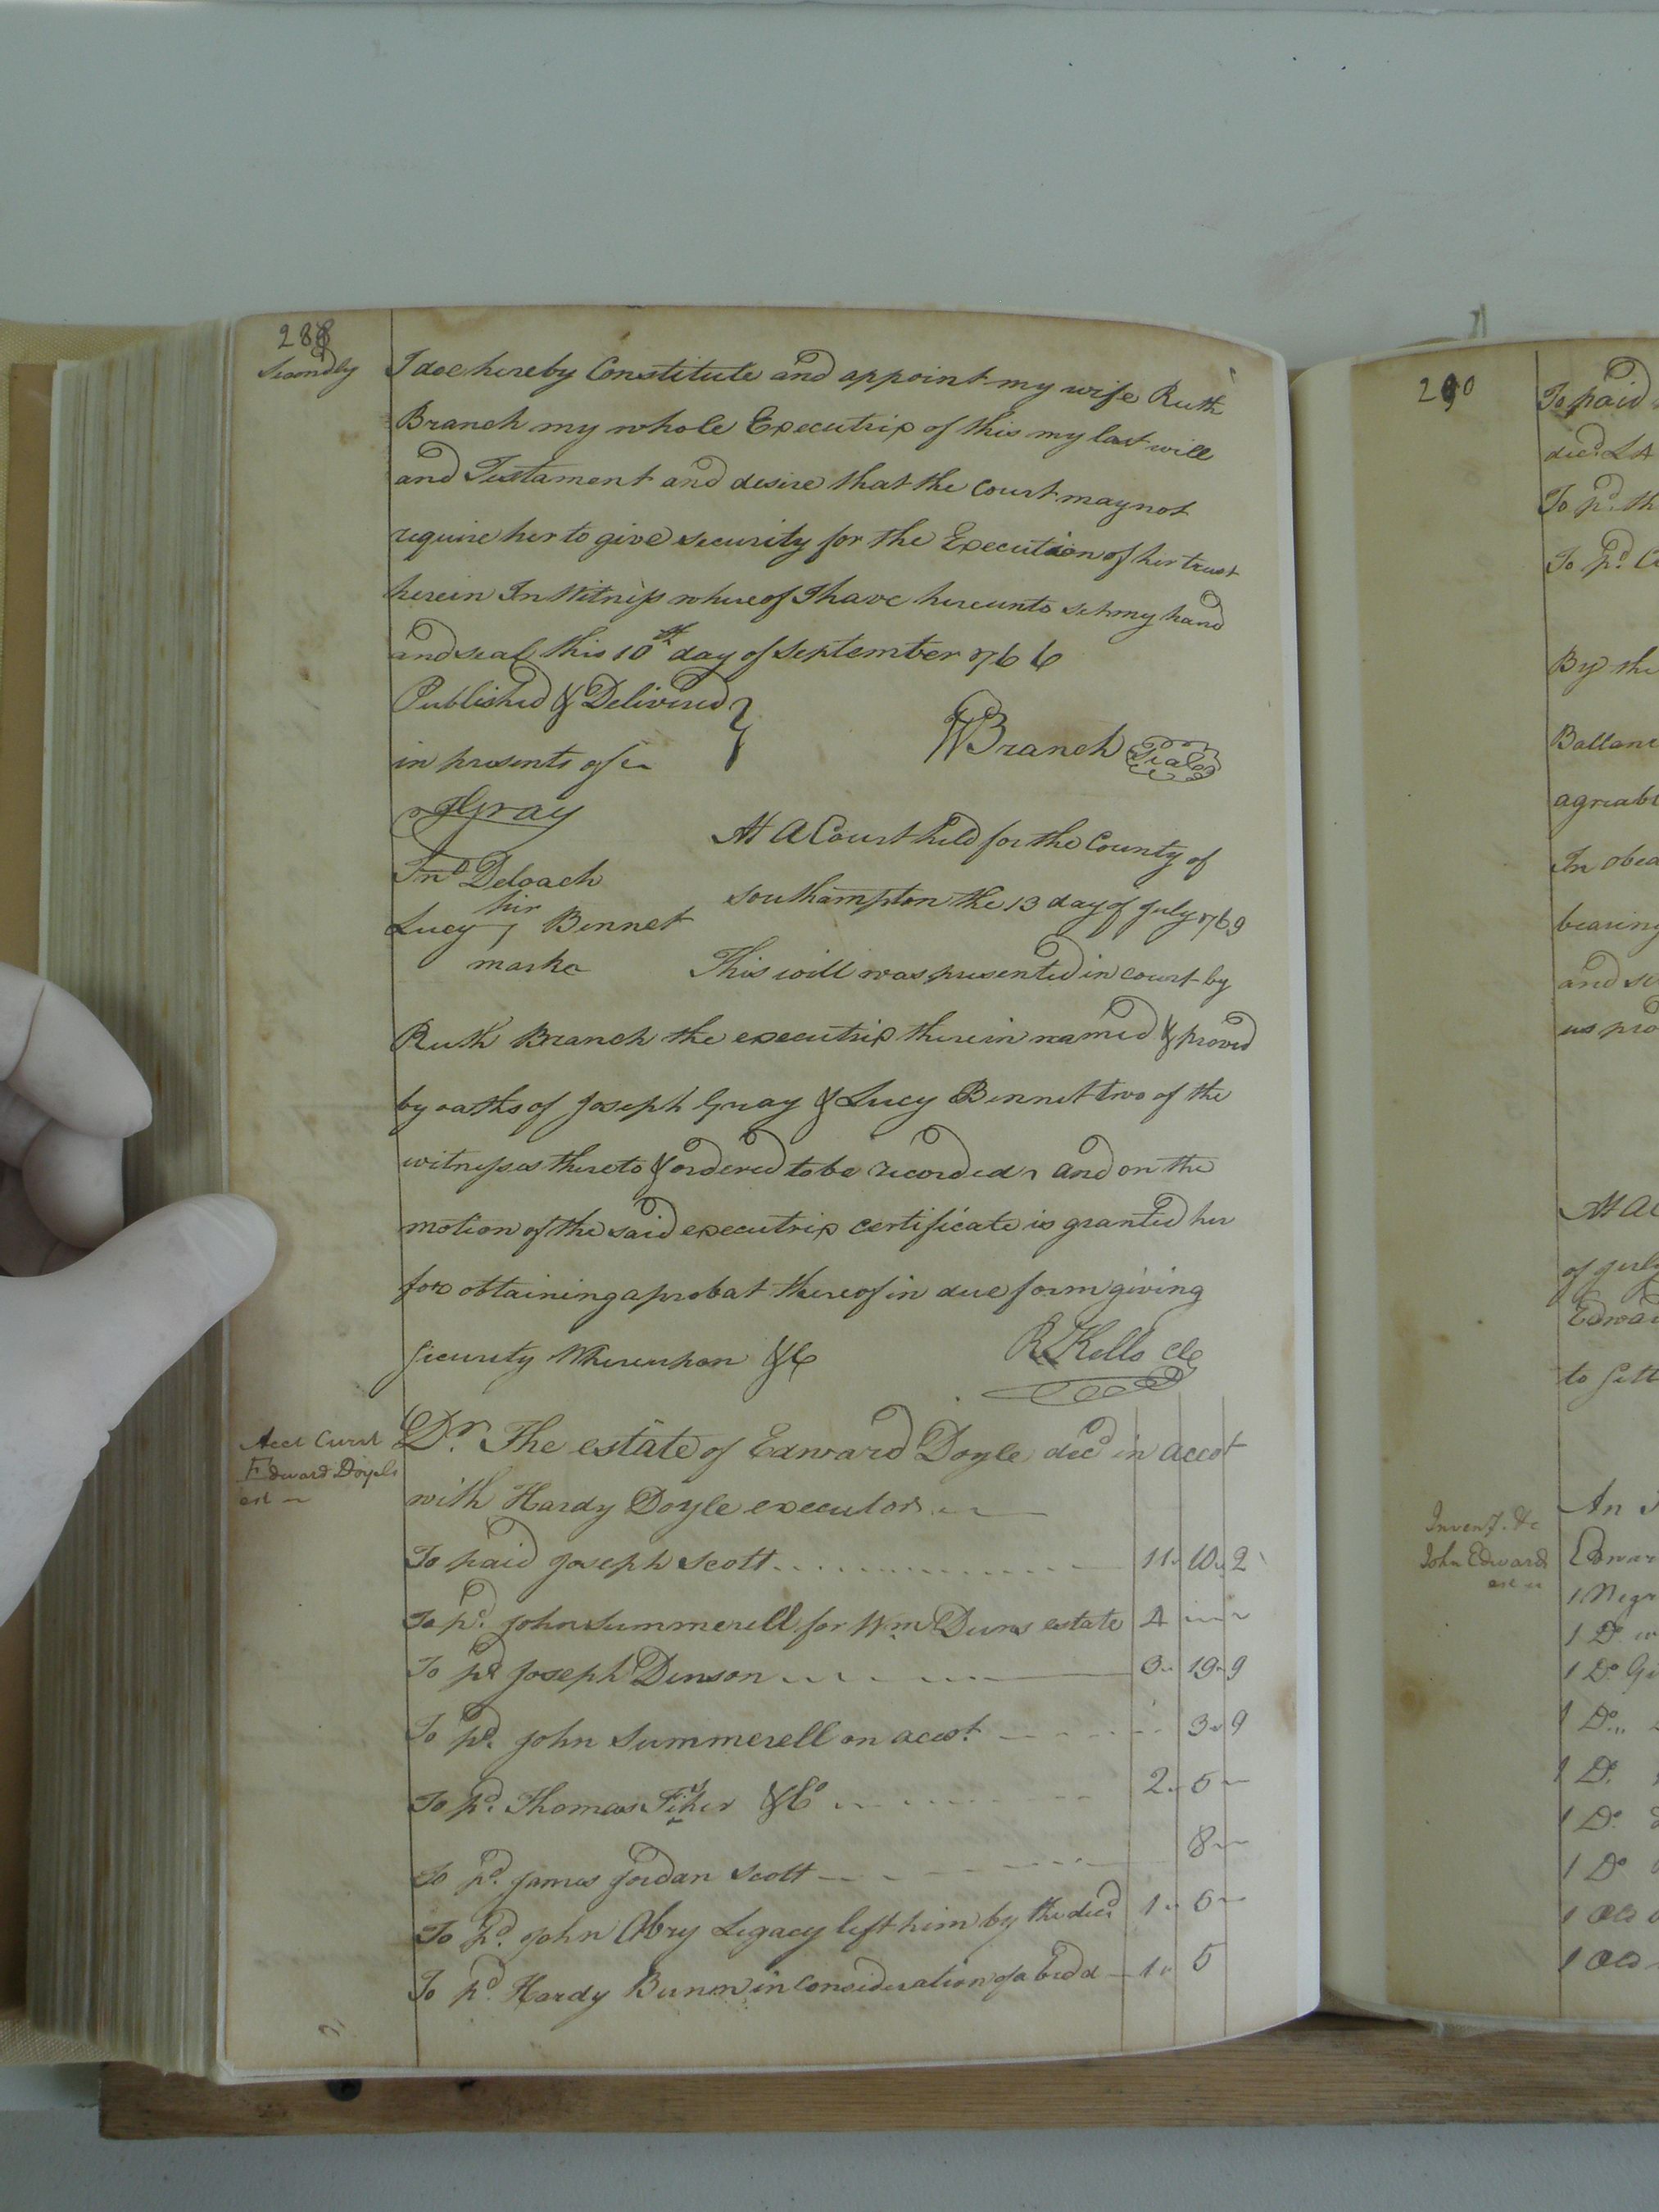 288
Secondly
I doe hereby Constitute and appoint my wife Ruth
Branch my whole Executrix of this my last will
and Testament and desire that the Court may not
require her to give security for the Execution of her trust
herein In Witness whereof I have hereunto set my hand
and seal this 10th day of September 1766
Published & Delivered
in presents of
W Branch Seal
J Gray
Jno Deloach
her
Lucy 1 Bennet
marke
At A Court held for the County of
Southampton the 13 day of July 1769
This will was presented in court by
Ruth Branch the executrix therein named & proved
by oaths of Joseph Gray & Lucy Bennet two of the
witnesses thereto & ordered to be recorded and on the
motion of the said executrix certificate is granted her
for obtaining a probat thereof in due form giving
Security Whereupon &c
R Kello Cle
Acct Curnt
Edward Doyels
est
Dr. The estate of Edward Doyle decd in accot
with Hardy Doyle executor
To paid Joseph Scott 11 10 2
To pd. John Summerell for Wm Duns estate 4
To pd Joseph Denson 0 19 9
To pd. John Summerell on accot. 3 9
To pd. Thomas &Co 2 5
To pd. James Jordan Scott 8
To pd. John Abry Legacy left him by the decd 1 5
To pd. Hardy in consideration of a bedd 1 5
290
To paid
decd.
To pd. th
To pd.
By the
Ballanc
agreab
In obed
bearing
and
us pro
At A C
of July
Edwar
to Sett
Invent. &c
John Edwards
est
An
Edwar
1 Negr
1 Do w
1 Do Gi
1 Do
1 Do
1 Do
1 Do
1 Old
1 Old